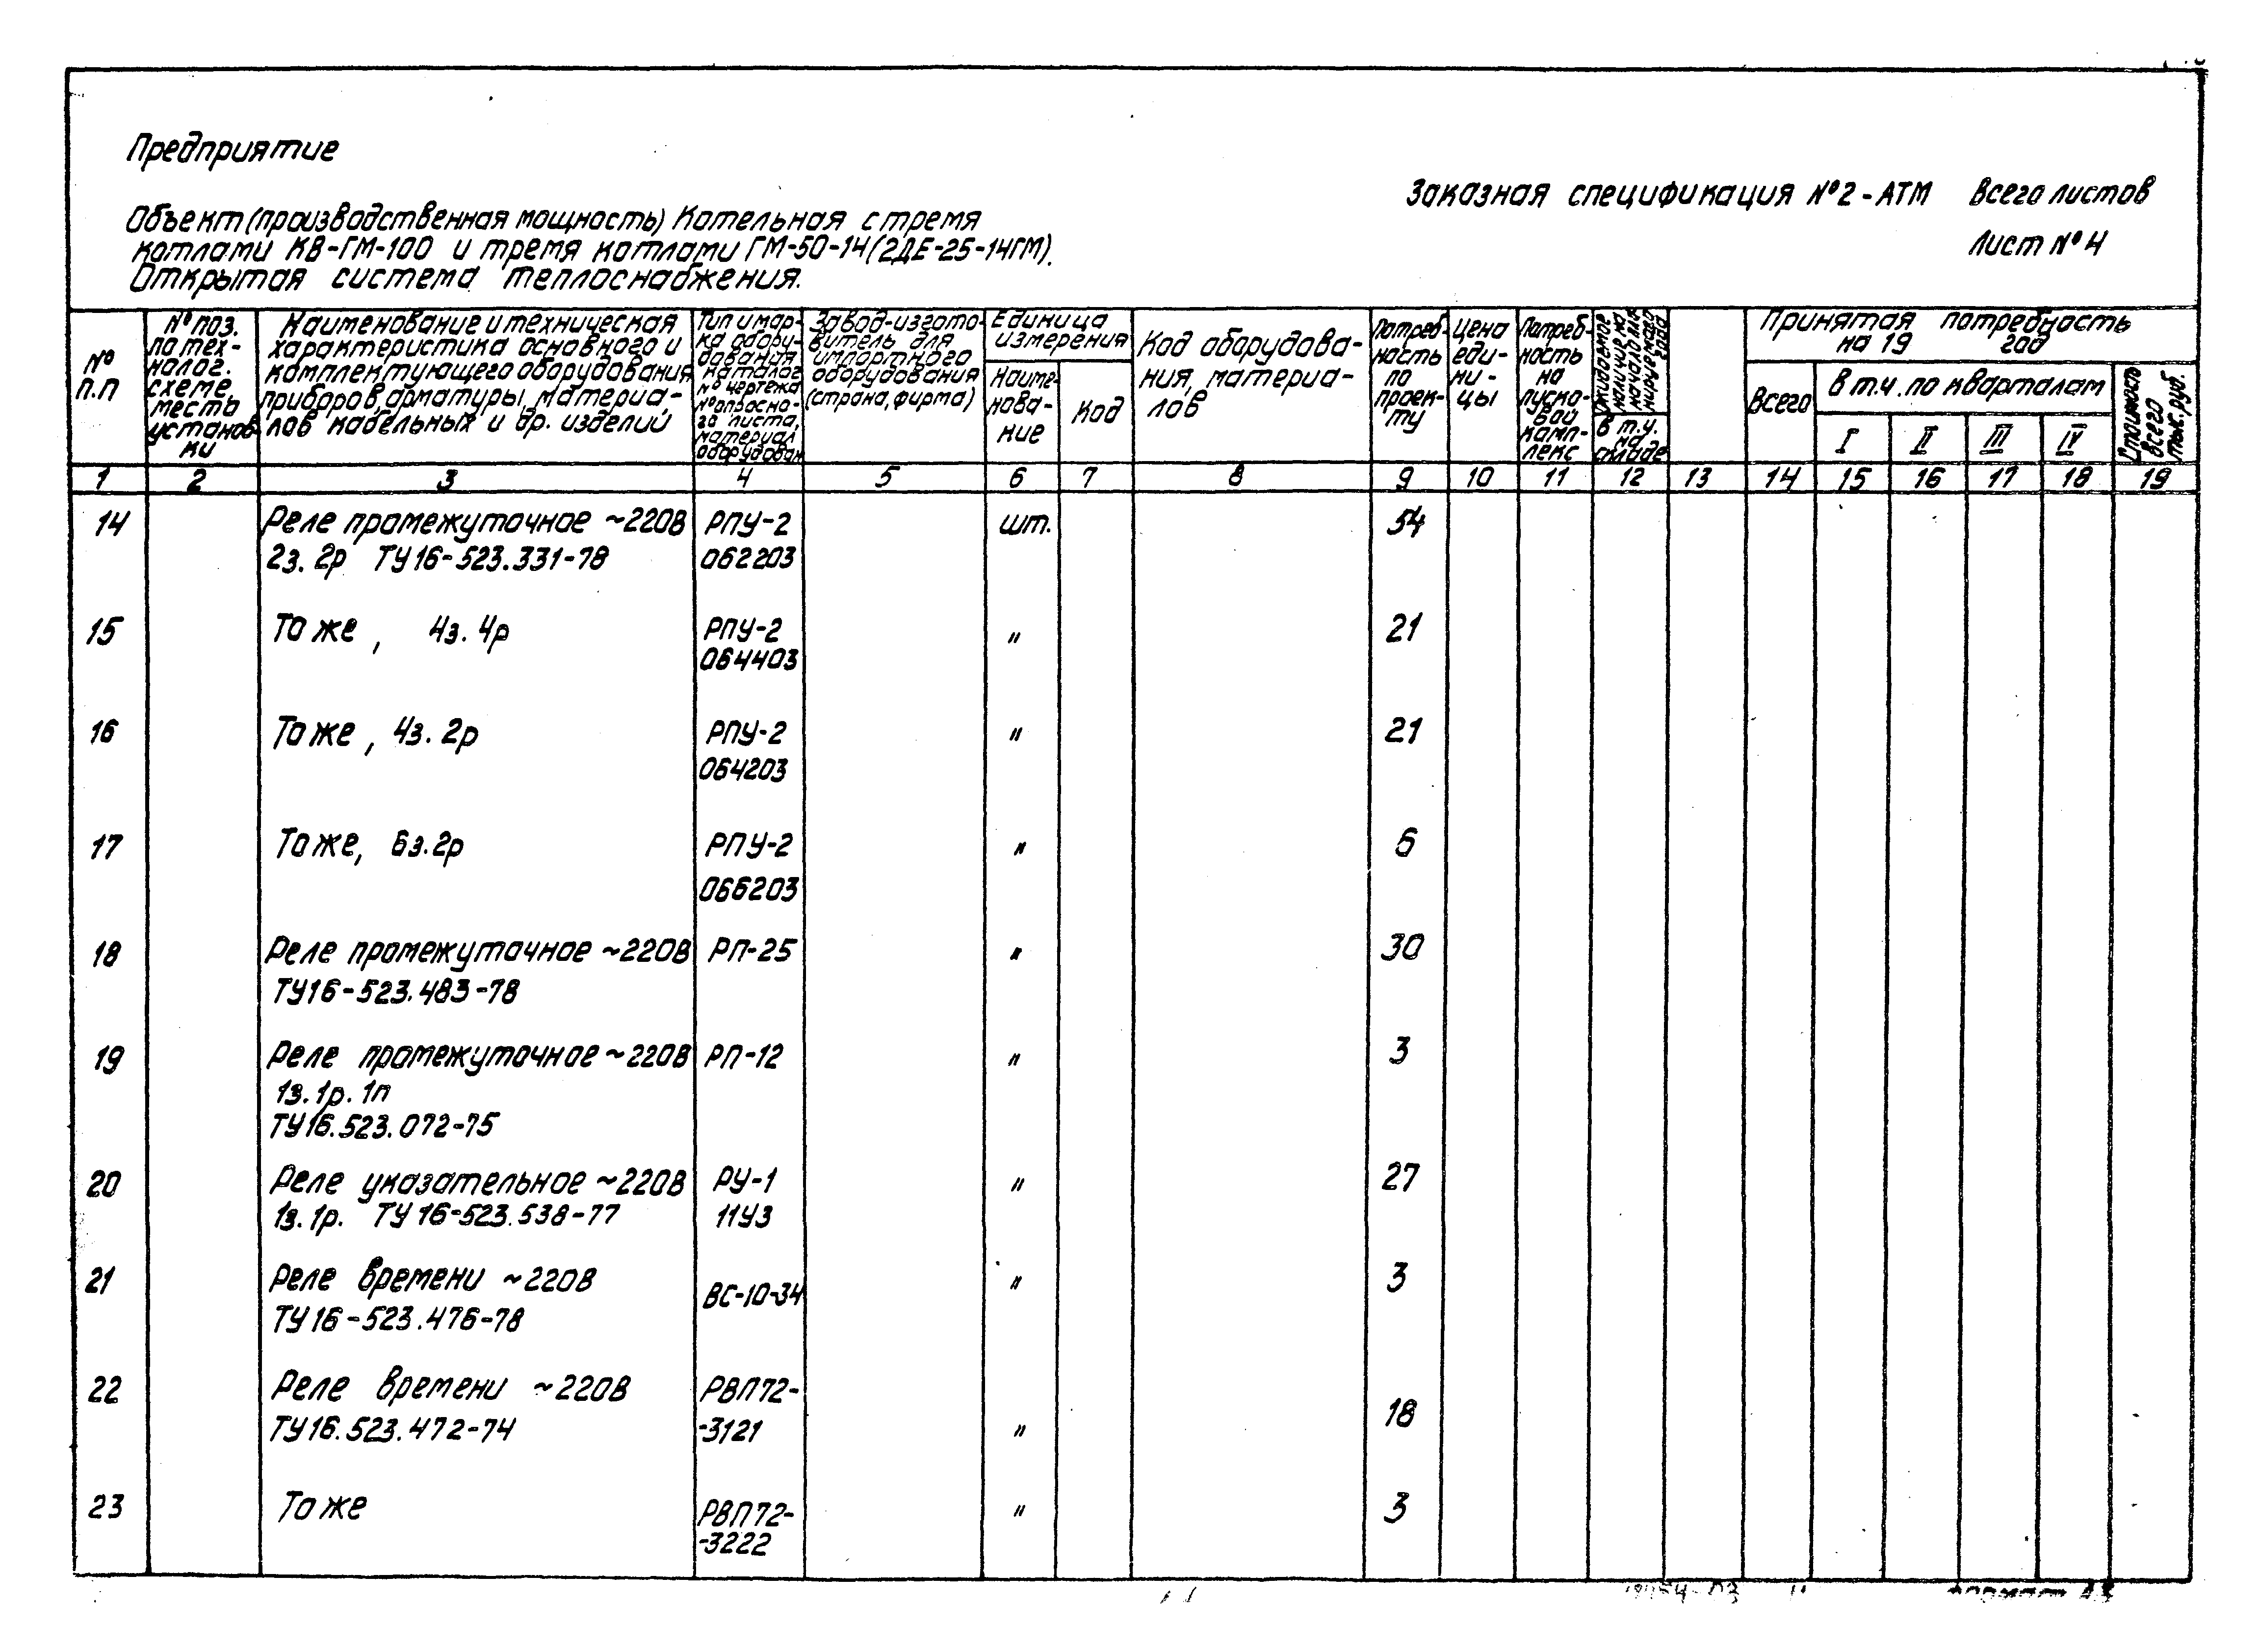 Предприятие
Заказная спецификация №2-АТМ Всего листов
Лист №4
Объект (производственная мощность) Котельная с тремя
котлами КВ-ГМ-100 и тремя котлами ГМ-50-14(2ДЕ-25-14ГМ).
Открытая система теплоснабжения.
№
п.п
№ поз.
по тех-
нолог.
схеме,
место
установ-
ки
Наименование и техническая
характеристика основного и
комплектующего оборудования
приборов, арматуры, материа-
лов кабельных и др. изделий
Тип и мар-
ка обору-
дования
каталог
№ чертежа
№ опросно-
го листа,
материал
оборудован
Завод-изгото-
витель для
импортного
оборудования
(страна, фирма)
Единица
измерения
Наиме-
нова-
ние
Код
Код оборудова-
ния, материа-
лов
Потреб-
ность
по
проек-
ту
Цена
еди-
ни-
цы
Потреб-
ность
на
пуско-
вой
комп-
лекс
Ожидаемое
наличие на
начало пла-
нируемого
года
в т.ч.
на
складе
Принятая потребность
на 19 год
Всего
в т.ч. по кварталам
I II III IV
Стоимость
всего
тыс.руб.
1 2 3 4 5 6 7 8 9 10 11 12 13 14 15 16 17 18 19
14 Реле промежуточное ~220В РПУ-2 шт. 54
2з. 2р ТУ16-523.331-78 062203
15 То же, 4з. 4р РПУ-2 " 21
064403
16 То же, 4з. 2р РПУ-2 " 21
064203
17 То же, 6з. 2р РПУ-2 " 6
066203
18 Реле промежуточное ~220В РП-25 " 30
ТУ16-523.483-78
19 Реле промежуточное ~220В РП-12 " 3
1з. 1р. 1п
ТУ16.523.072-75
20 Реле указательное ~220В РУ-1 " 27
1з. 1р. ТУ 16-523.538-77 11У3
21 Реле времени ~220В ВС-10-34 " 3
ТУ16-523.476-78
22 Реле времени ~220В РВП72- 18
ТУ16.523.472-74 -3121 "
23 То же РВП72- " 3
-3222
формат А3